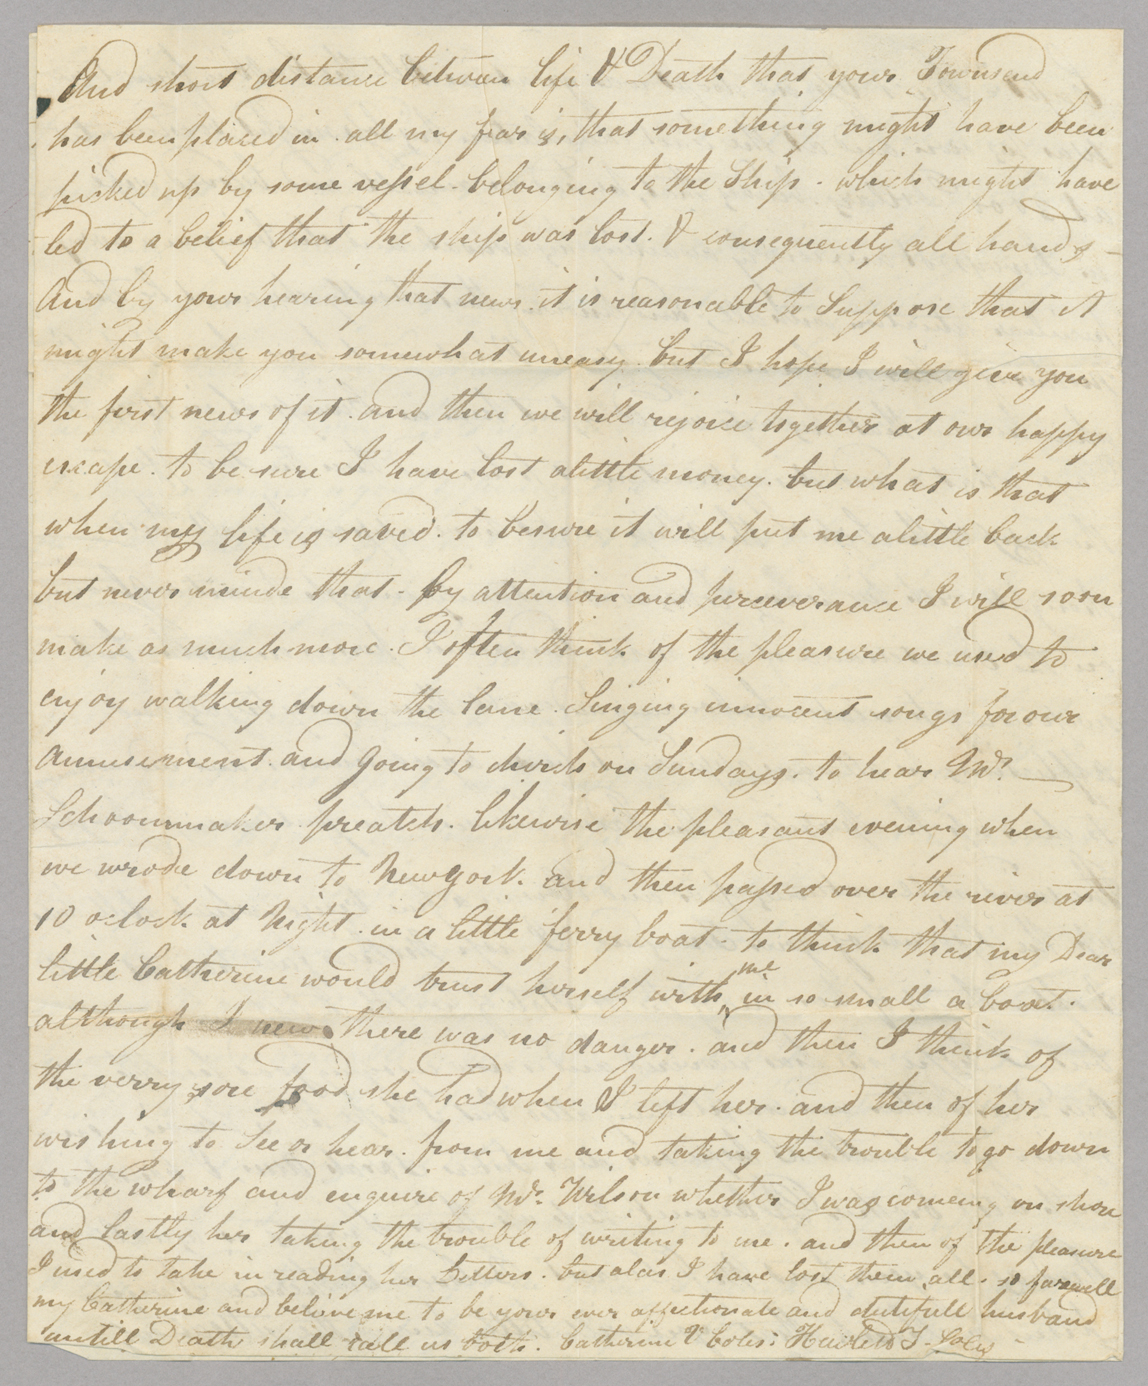 And short distance between life & Death that your Townsend
has been placed in. all my fear is, that something might have been
picked up by some vessel. belonging to the Ship. which might have
led to a belief that the ship was lost. & consequently all hands
And by your hearing that news. it is reasonable to Suppose that it
might make you somewhat uneasy. but I hope I will give you
the first news of it. and then we will rejoice together at our happy
escape. to be sure I have lost alittle money. but what is that
when my life is saved. to besure it will put me alittle back
but never minde that. by attention and perceverance I will soon
make as much more. I often think of the pleasure we used to
enjoy walking down the lane. Singing innocent songs for our
amusement. and going to church on Sundays. to hear Mr.
Schoonmaker preatch. likewise the pleasant evening when
we wrode down to New york. and then passed over the river at
10 oclock at Night. in a little ferry boat. to think that my Dear
little Catherine would trust herself with me in so small a boat.
although I new there was no danger. and then I think of
the verry sore food she had when I left her. and then of her
wishing to See or hear. from me and taking the trouble to go down
to the wharf and enquire of Mr. Wilson whether I was comeing on shore
and lastly her taking the trouble of writing to me. and then of the pleasure
I used to take in reading her Letters. but alas I have lost them all. so farewell
my Catherine and believe me to be your ever affectionate and dutifull husband
untill Death shall call us both. Catherine V Coles: Hewlett T. Coles